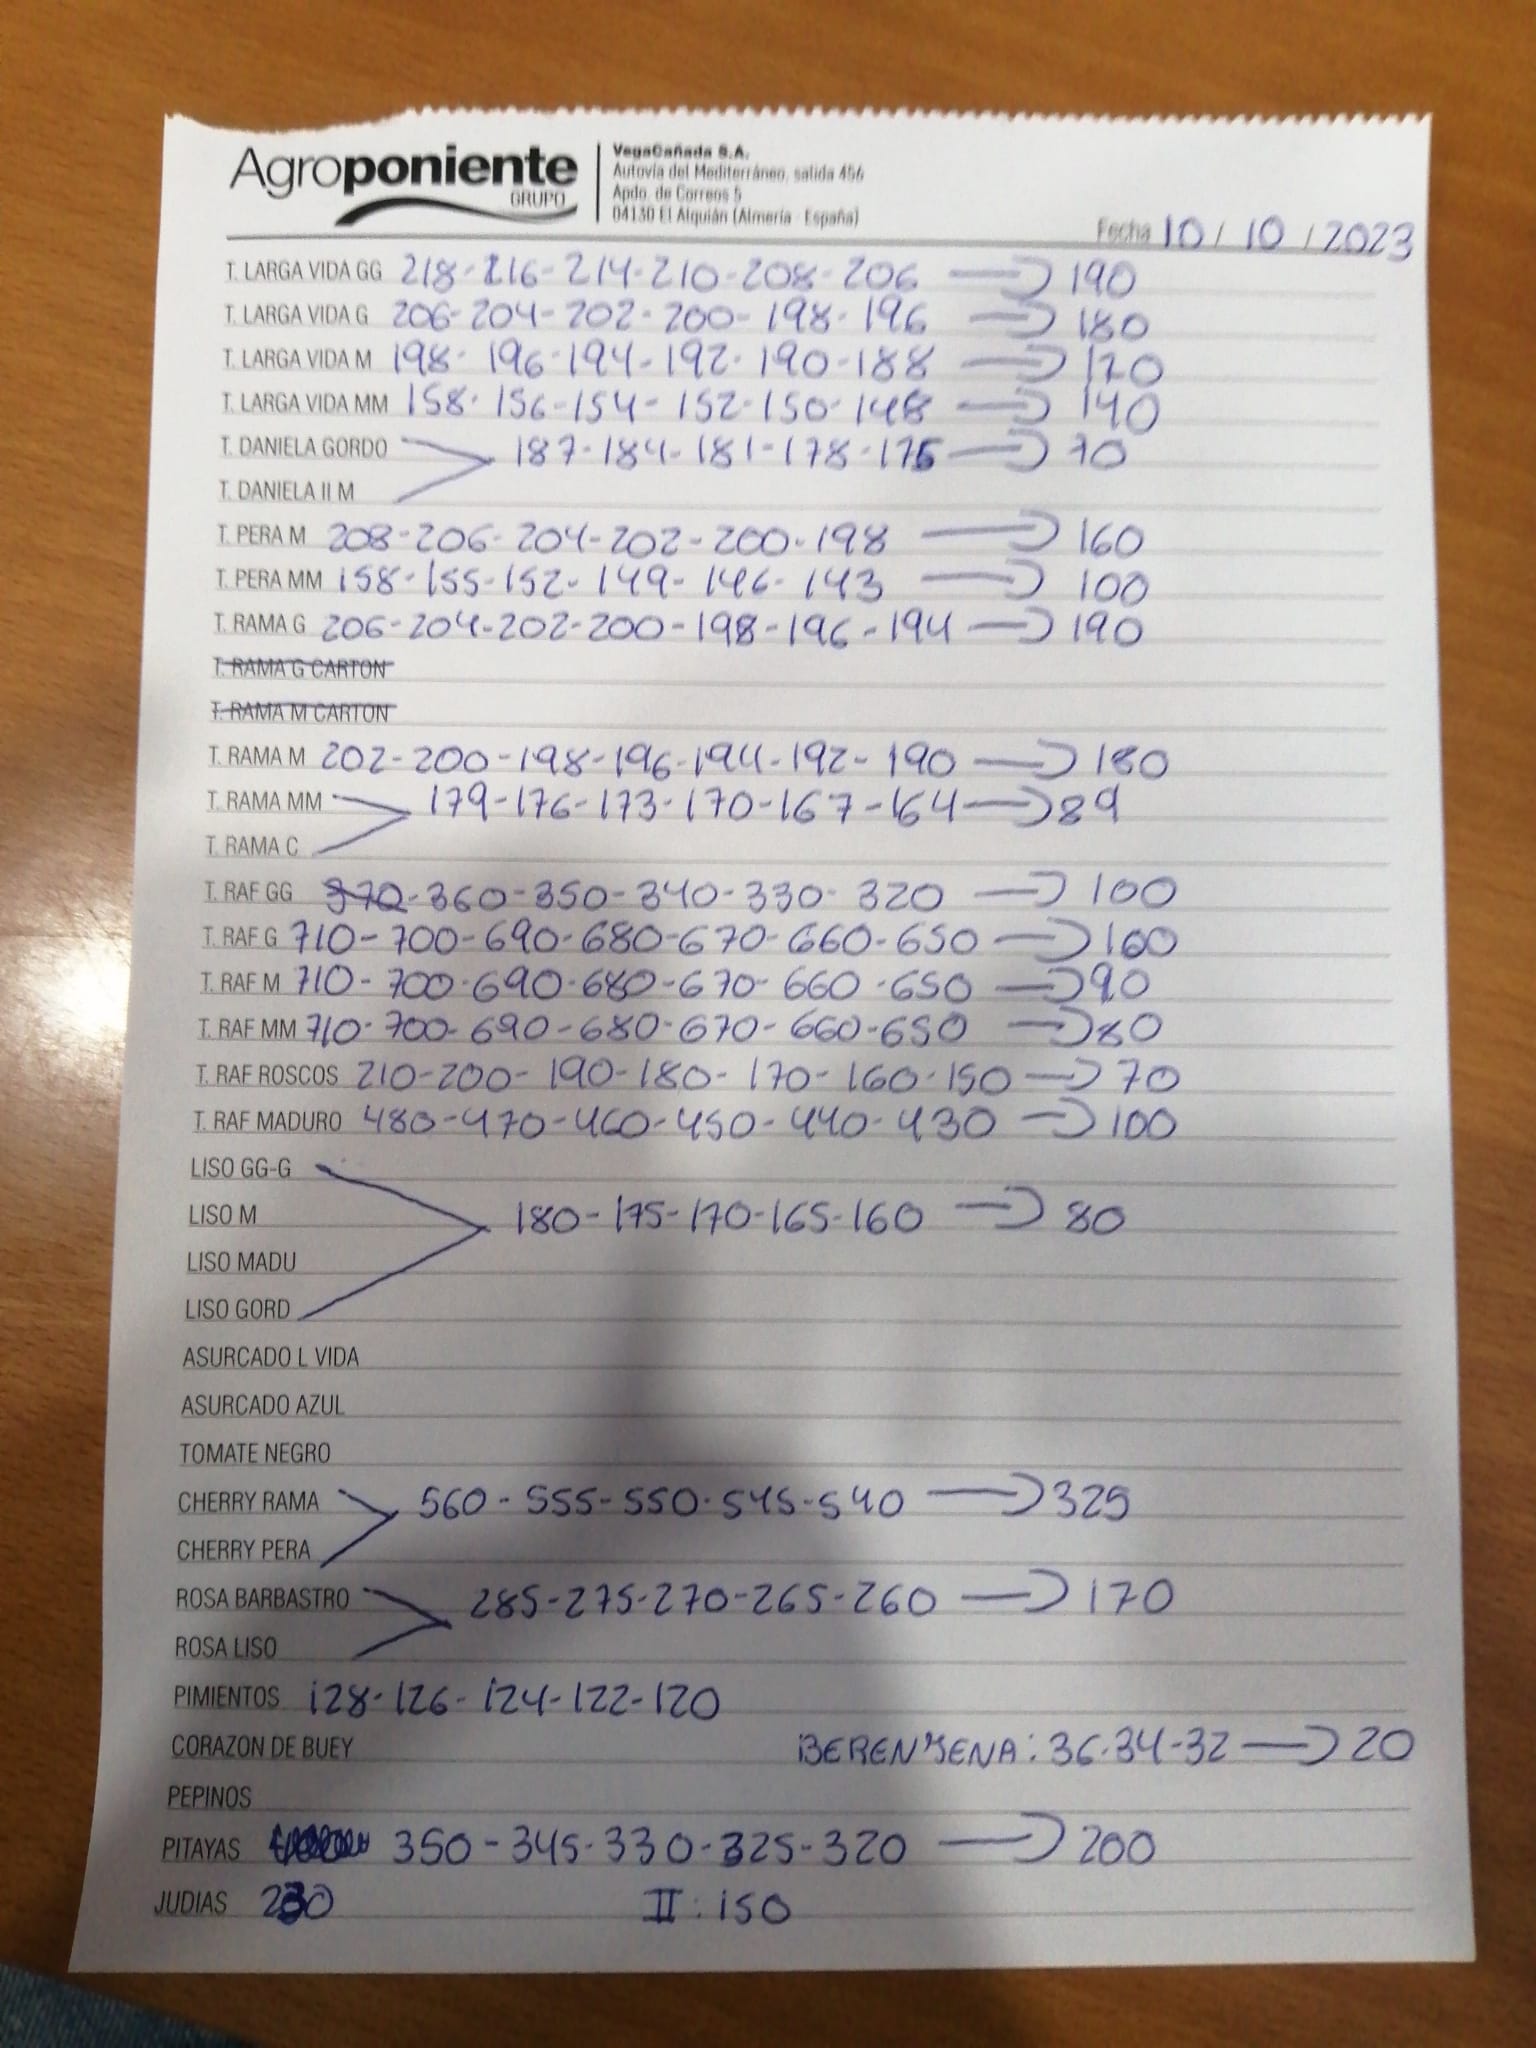 Agroponiente
GRUPO
VegaCañada S.A.
Autovía del Mediterráneo, salida 456
Apdo. de Correos 5
04130 El Alquián (Almería - España)
Fecha 10 / 10 / 2023
T. LARGA VIDA GG 218-216-214-210-208-206 → 190
T. LARGA VIDA G 206-204-202-200-198-196 → 180
T. LARGA VIDA M 198-196-194-192-190-188 → 170
T. LARGA VIDA MM 158-156-154-152-150-148 → 140
T. DANIELA GORDO 187-184-181-178-175 → 70
T. DANIELA II M
T. PERA M 208-206-204-202-200-198 → 160
T. PERA MM 158-155-152-149-146-143 → 100
T. RAMA G 206-204-202-200-198-196-194 → 190
T. RAMA G CARTON
T. RAMA M CARTON
T. RAMA M 202-200-198-196-194-192-190 → 180
T. RAMA MM 179-176-173-170-167-164 → 89
T. RAMA C
T. RAF GG 370-360-350-340-330-320 → 100
T. RAF G 710-700-690-680-670-660-650 → 160
T. RAF M 710-700-690-680-670-660-650 → 90
T. RAF MM 710-700-690-680-670-660-650 → 80
T. RAF ROSCOS 210-200-190-180-170-160-150 → 70
T. RAF MADURO 480-470-460-450-440-430 → 100
LISO GG-G
LISO M 180-175-170-165-160 → 80
LISO MADU
LISO GORD
ASURCADO L VIDA
ASURCADO AZUL
TOMATE NEGRO
CHERRY RAMA 560-555-550-545-540 → 325
CHERRY PERA
ROSA BARBASTRO 285-275-270-265-260 → 170
ROSA LISO
PIMIENTOS 128-126-124-122-120
CORAZON DE BUEY BERENJENA: 36-34-32 → 20
PEPINOS
PITAYAS 350-345-330-325-320 → 200
JUDIAS II: 150